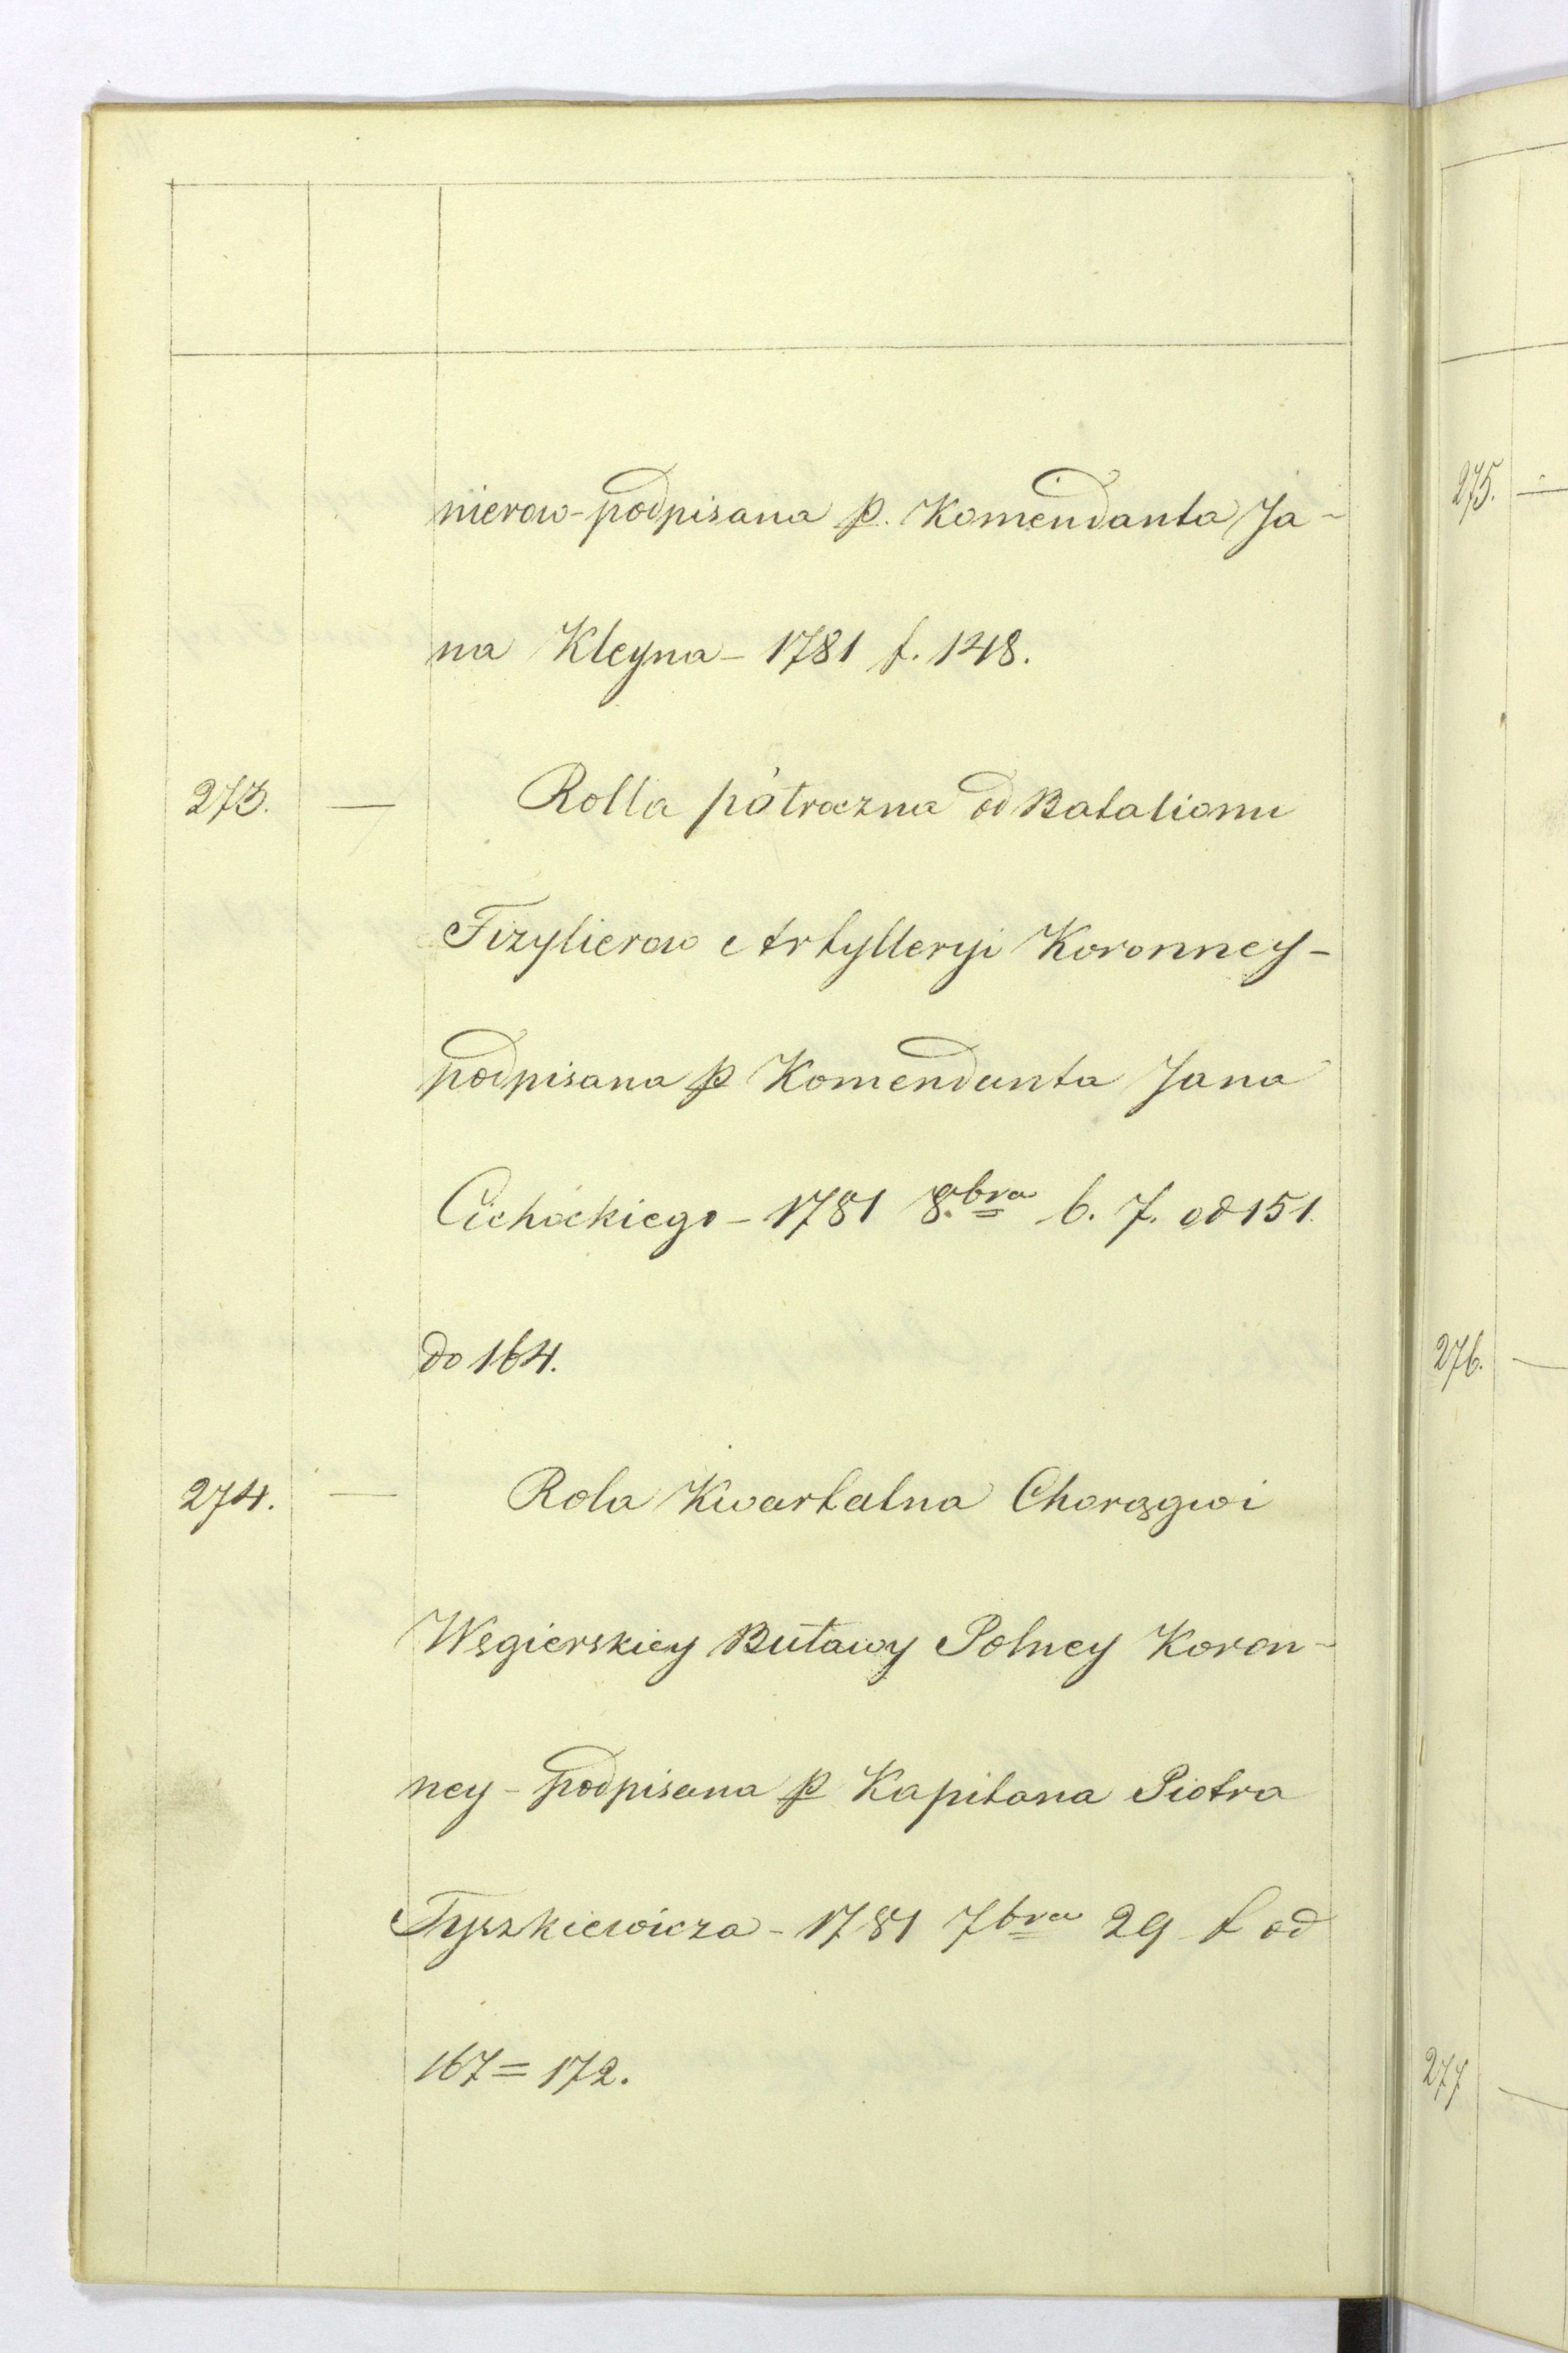 nierow-podpisana p. Komendanta Ja-
na Kleyna - 1781 f. 148.
273. — Rolla półroczna od Batalionu
Fizylierow Artylleryi Koronney -
podpisana p Komendanta Jana
Cichockiego - 1781 8.bra 6. f. od 151.
do 164.
274. — Rola Kwartalna Chorągwi
Węgierskiey Buławy Polney Koron-
ney - podpisana p Kapitana Piotra
Tyszkiewicza - 1781 7bra 29 f od
167 = 172.
275. —
276. —
277 —